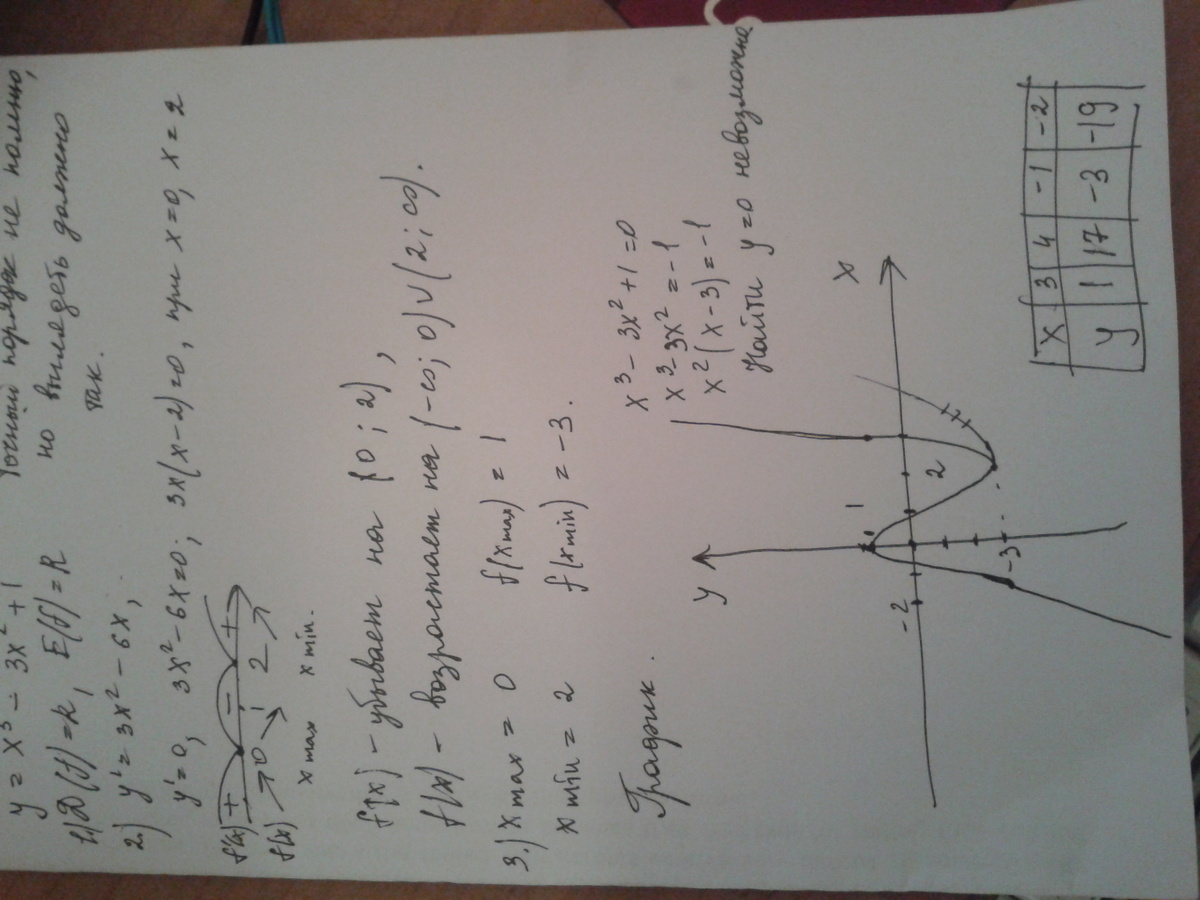 y = x³ - 3x² + 1
Точный порядок не помню,
но выглядеть должно
так.
1.) D(f)=R, E(f)=R
2.) y'= 3x² - 6x,
y'=0, 3x² - 6x=0; 3x(x-2)=0, при x=0, x=2
f'(x) + - +
f(x) 0 2
x max x min.
f(x) - убывает на (0; 2),
f(x) - возрастает на (-∞; 0)∪(2; ∞).
3.) x max = 0 f(x max) = 1
x min = 2 f(x min) = -3.
График.
x³ - 3x² + 1 = 0
x³ - 3x² = -1
x²(x-3) = -1
Найти y=0 невозможно
y
x
1
2
-2
-3
x 3 4 -1 -2
y 1 17 -3 -19